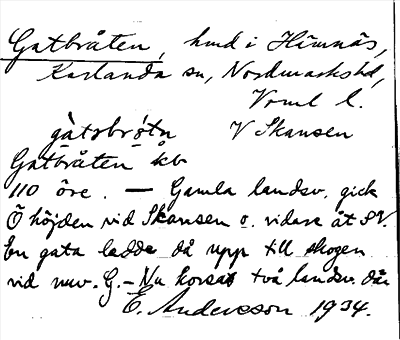 Gatbråten, hmd i Himnäs,
Karlanda sn, Nordmarks hd,
Vrml l.
gàtəbrǫ̀tṇ V Skansen
Gatbråten kb
110 öre. — Gamla landsv. gick
Ö höjden vid Skansen o. vidare åt SV.
En gata ledde då upp till skogen
vid nuv. G. – Nu korsas två landsv. där
E. Andersson 1934.